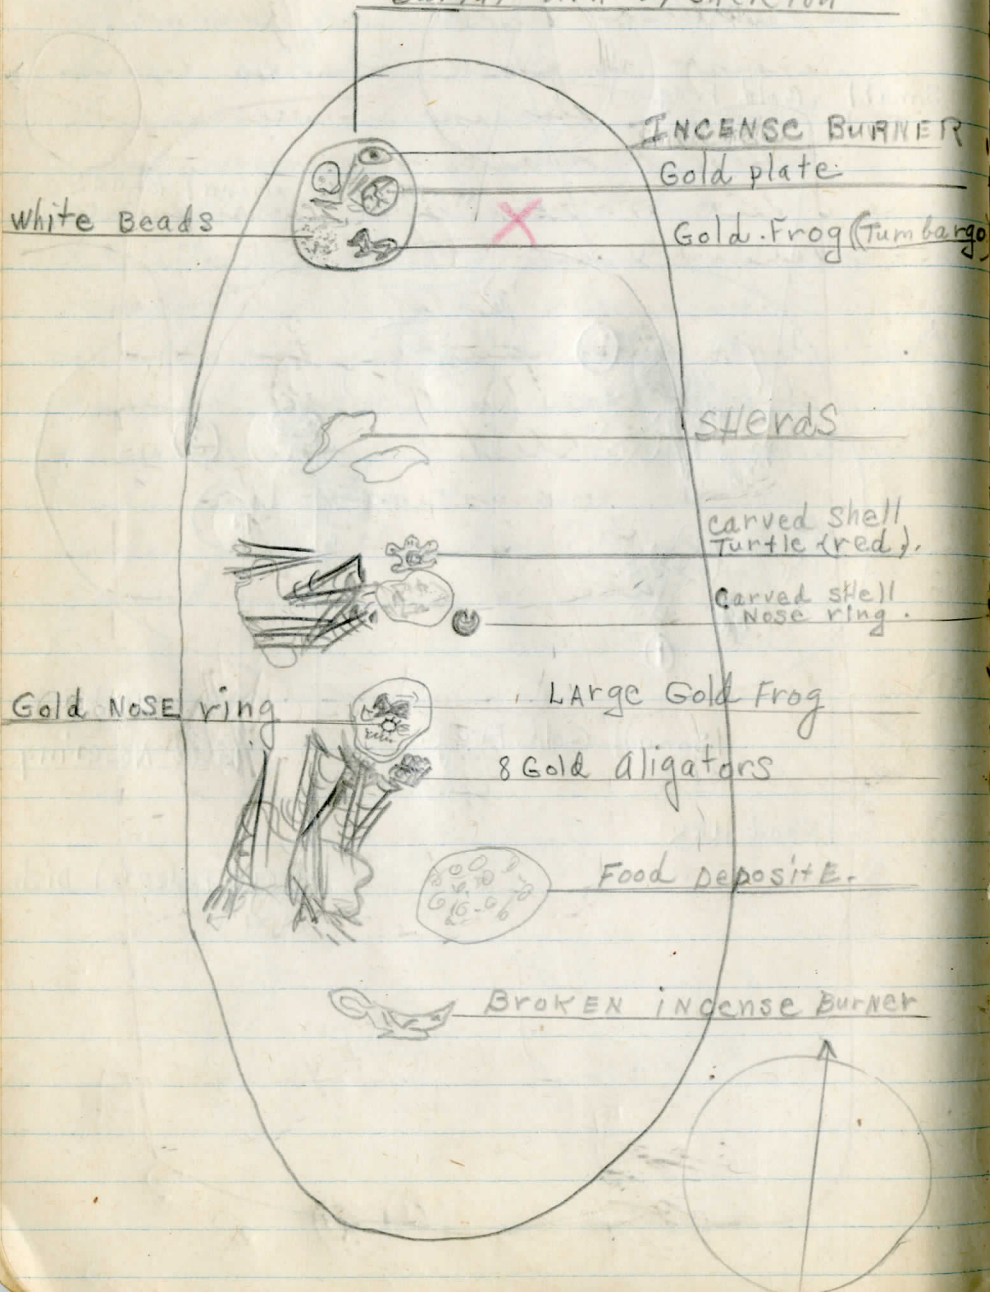 INCENSE BURNER
Gold plate
White Beads
Gold Frog (Tumbargo)
SHerdS
carved Shell
Turtle (red).
Carved SHell
Nose ring.
Gold NOSE ring
LArge Gold Frog
8 Gold Aligators
Food DeposiTE.
BroKEN incense Burner